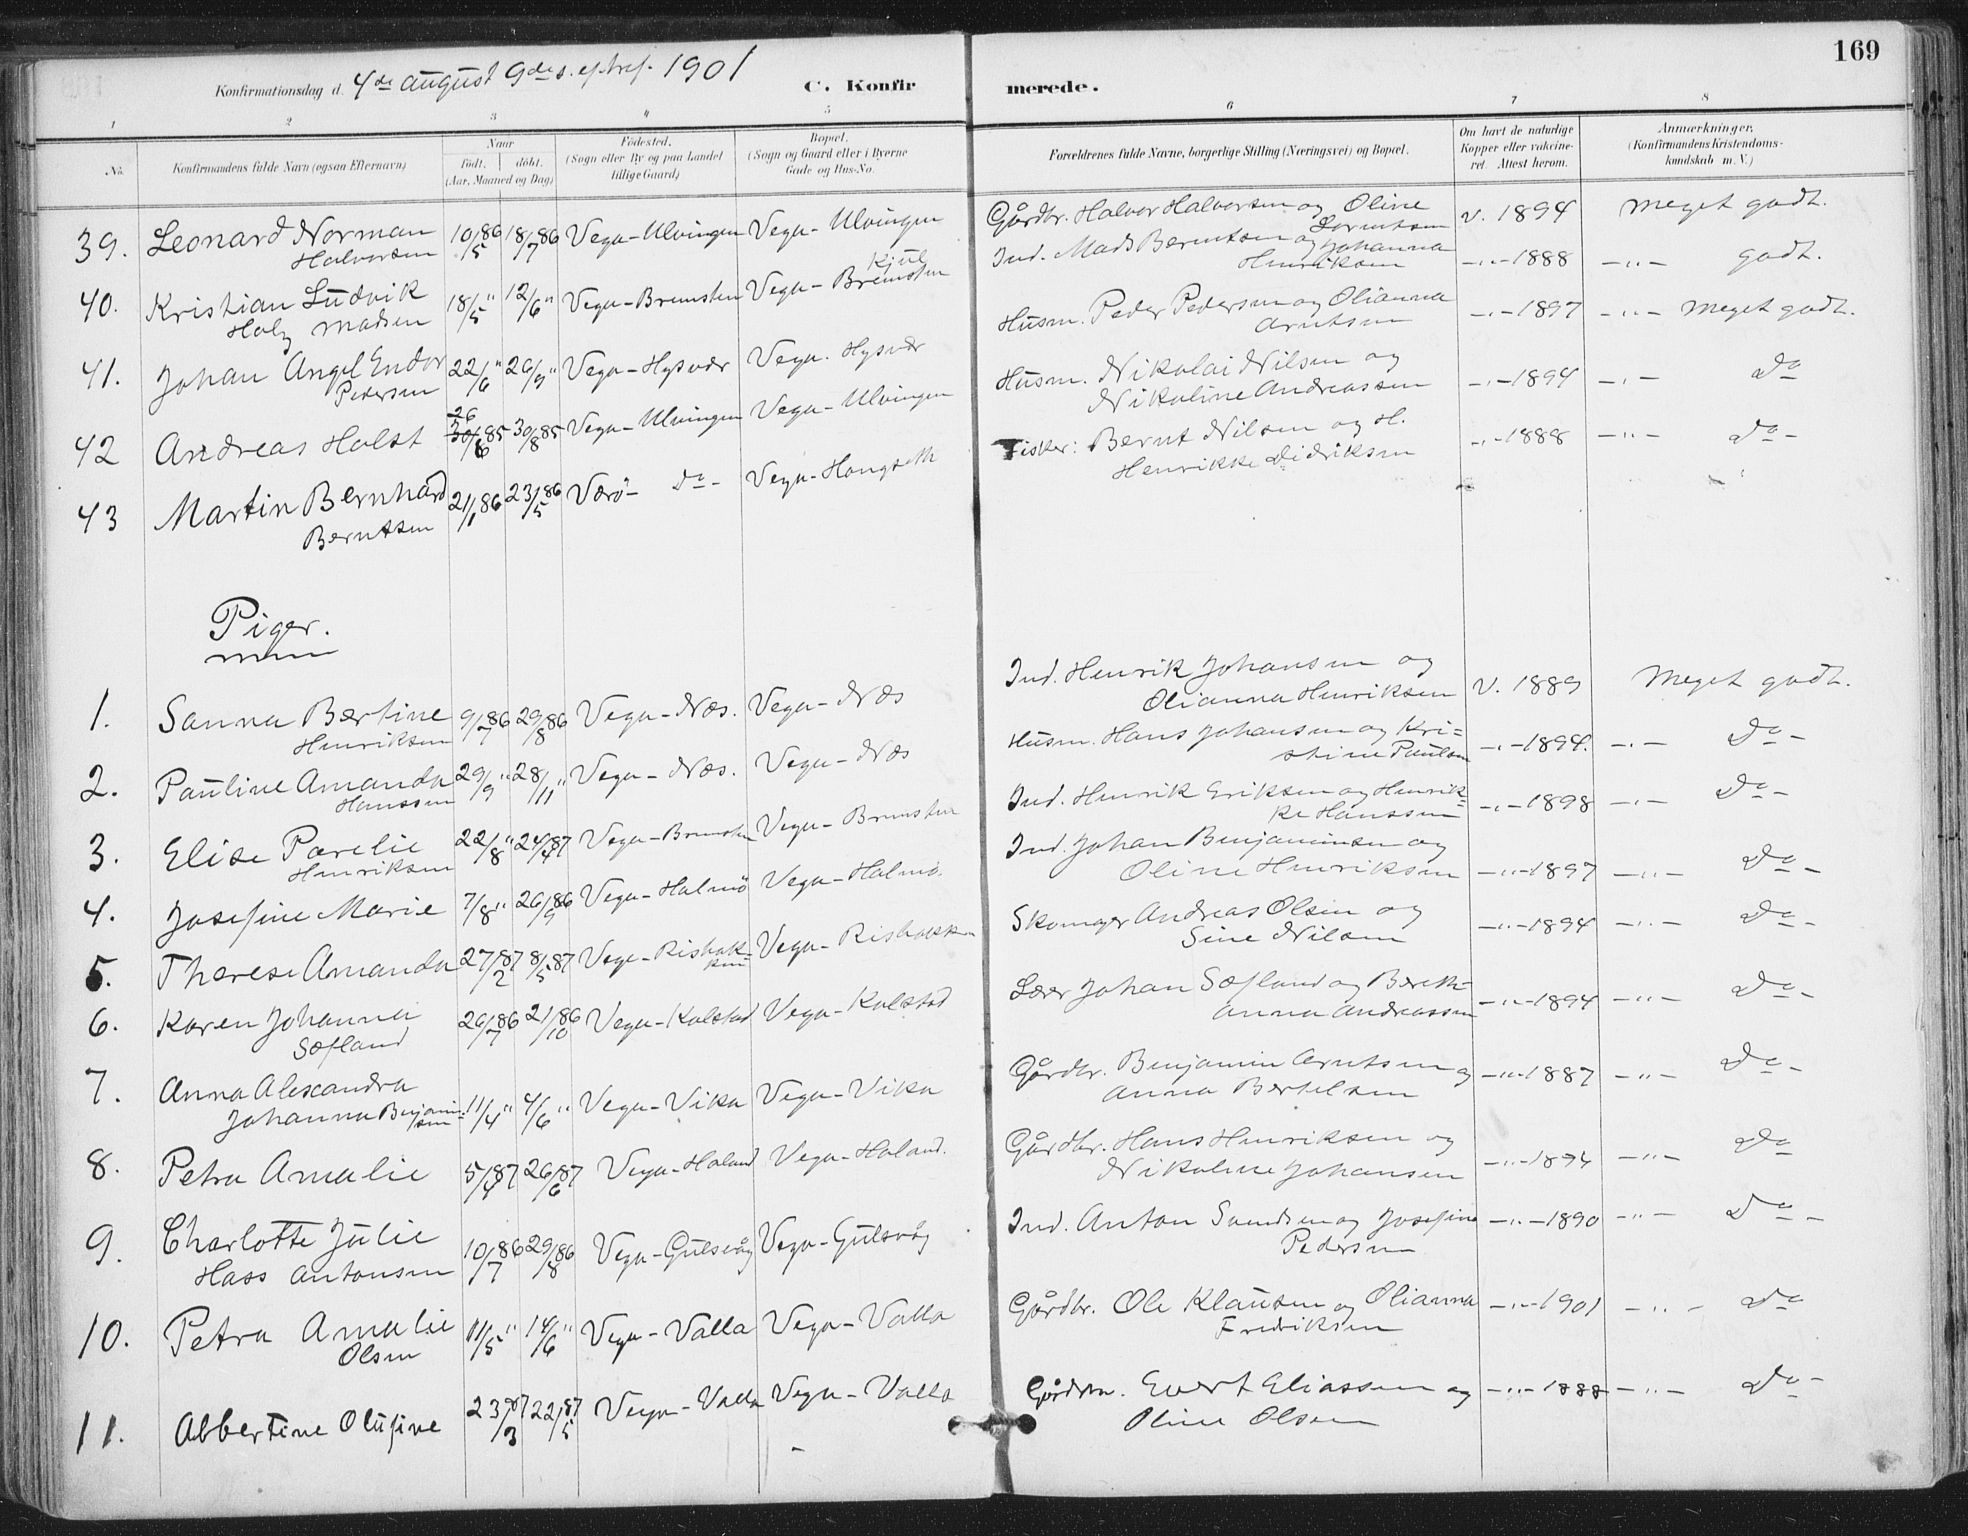 169
Konfirmationsdag d. 4de august 9de s. ef. tref. 1901
C. Konfirmerede.
1 2 3 4 5 6 7 8
No.
Konfirmandens fulde Navn (ogsaa Efternavn)
Naar
født. døbt.
(Aar, Maaned og Dag)
Fødested.
(Sogn eller By og paa Landet
tillige Gaard)
Bopæl.
(Sogn og Gaard eller i Byerne
Gade og Hus-No.
Forældrenes fulde Navne, borgerlige Stilling (Næringsvei) og Bopæl.
Om havt de naturlige
Kopper eller vakcine-
ret. Attest herom.
Anmærkninger.
(Konfirmandens Kristendoms-
kundskab m. V.)
39. Leonard Norman 10/5 86 18/7 86 Vega-Ulvingen Vega-Ulvingen Gårdbr. Halvor Halvorsen og Oline v. 1894 Meget godt.
Halvorsen Berntsen
40. Kristian Ludvik 18/5 " 12/6 " Vega-Bremsten Vega-Bremsten Ind. Mads Berntsen og Johanna -"-1888 -"- godt.
Holy Madsen Kjul Henriksen
41. Johan Angel Endor 22/6 " 26/9 " Vega-Hysvær Vega. Hysvær Husm. Peder Pedersen og Olianna -"-1897 -"- Meget godt.
Pedersen Arntsen
42 Andreas Holst 26 30/6 85 30/8 85 Vega-Ulvingen Vega-Ulvingen Husm. Nikolai Nilsen og -"-1894 -"- Do
Nikoline Andreassen
43 Martin Bernhard 21/1 86 23/5 86 Værö- Do- Vega-Hongseth Fisker: Bernt Nilsen og H. -"-1888 -"- Do-
Berntsen Henrikke Didriksen
Piger.
1. Sanna Bertine 9/7 86 29/8 86 Vega-Næs. Vega-Næs Ind. Henrik Johansen og V. 1889 Meget godt.
Henriksen Olianna Henriksen
2. Pauline Amanda 29/9 " 28/11 " Vega-Næs. Vega-Næs Husm. Hans Johansen og Kri- -"-1894. -"- Do-
Hanssen stine Paulsen
3. Elise Parelie 22/8 " 24/4 87 Vega-Bremsten Vega-Bremsten Ind. Henrik Eriksen og Henrik- -"-1898 -"- Do-
Henriksen ke Hanssen
4. Josefine Marie 7/8 " 26/9 86 Vega-Halmö Vega-Halmö. Ind. Johan Benjaminsen og -"-1897 -"- Do-
Oline Henriksen
5. Therese Amanda 27/2 87 8/5 87 Vega-Rishak- Vega-Rishakken Skomager Andreas Olsen og -"-1894 -"- Do-
ken Sine Nilsen
6. Karen Johanna 26/7 86 21/10 86 Vega-Kolstad Vega-Kolstad Lærer Johan Sæfland og Bereth- -"-1894 -"- Do-
Sæfland anna Andreassen
7. Anna Alexandra
Johanna Benjamin- 11/4 " 4/6 " Vega-Vika Vega-Vika Gårdbr. Benjamin Arntsen og -"-1887 -"- Do-
sen Anna Bertelsen
8. Petra Amalie 5/4 87 26/6 87 Vega-Holand Vega-Holand. Gårdbr. Hans Henriksen og -"-1894 -"- Do
Nikoline Johansen
9. Charlotte Julie 10/7 86 29/8 86 Vega-Gulsvåg Vega-Gulsvåg Ind. Anton Svendsen og Josefine -"-1890 -"- Do-
Hass Antonsen Pedersen
10. Petra Amalie 11/5 " 14/6 " Vega-Valla Vega-Valla Gårdbr. Ole Klausen og Olianna -"-1901 -"- Do
Olsen Fredriksen
11. Abbertine Olufine 23/3 87 22/5 87 Vega-Valla Vega-Valla Gårdbr. Evert Eliassen og -"-1888 -"- Do-
Oline Olsen